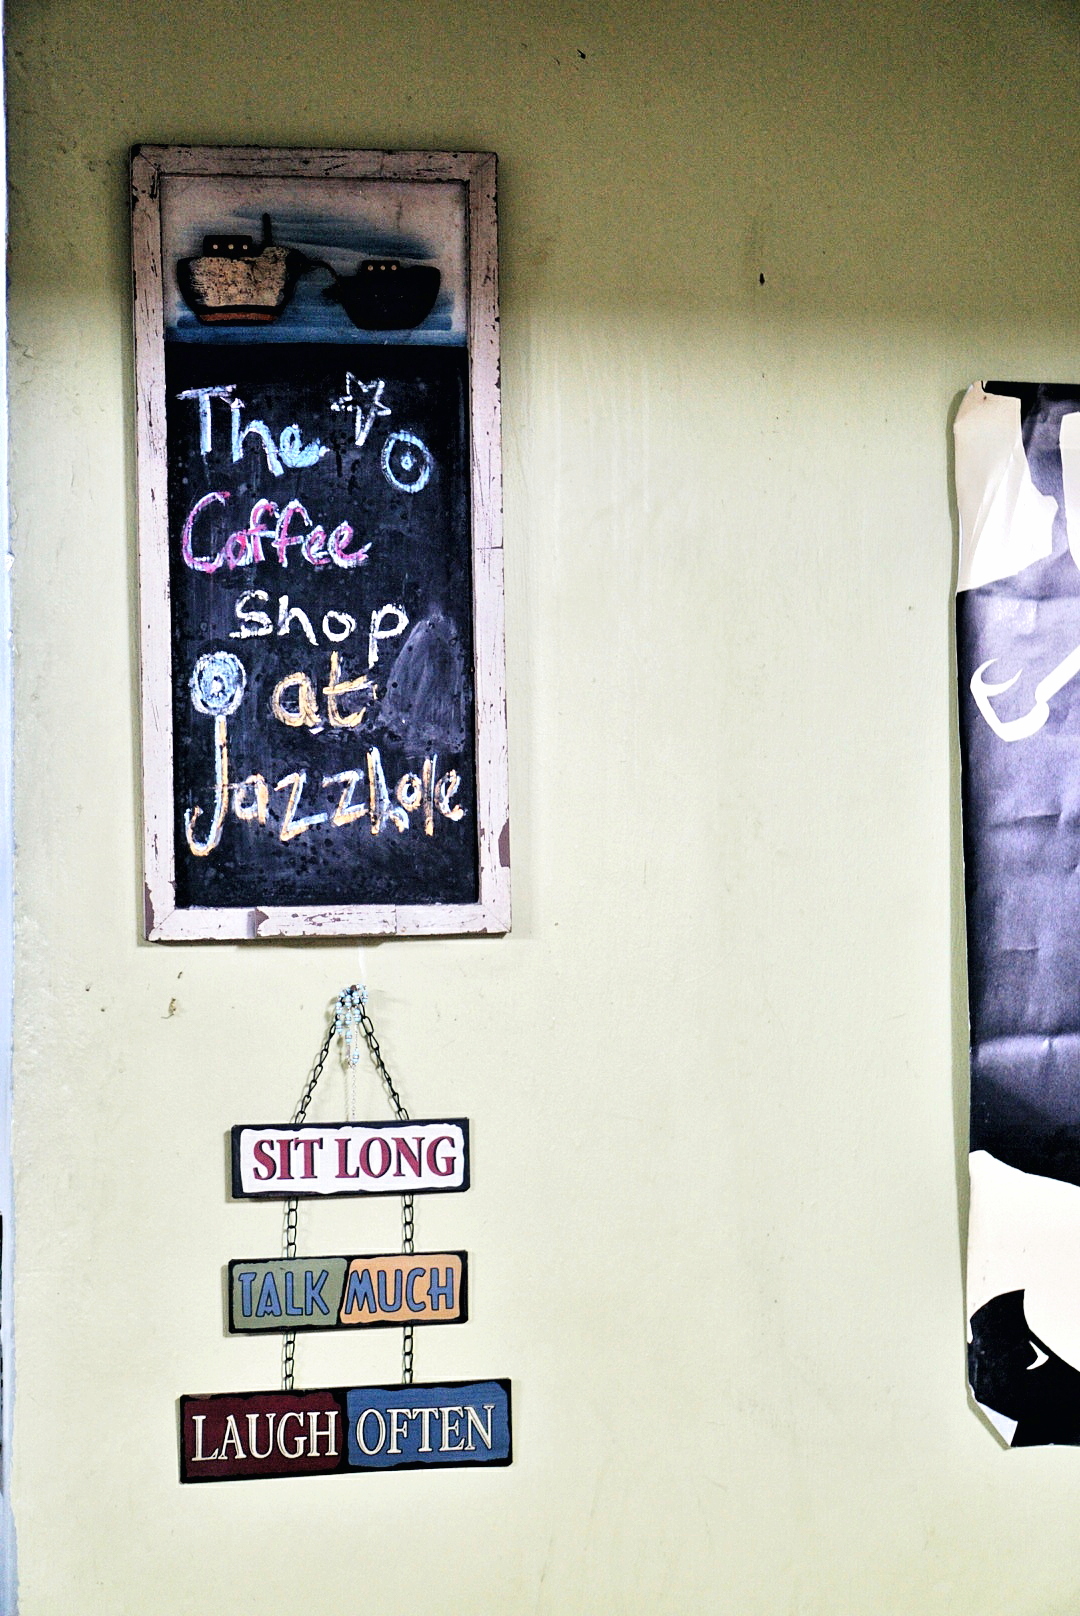 The
Coffee
Shop
at
Jazzhole
SIT LONG
TALK MUCH
LAUGH OFTEN